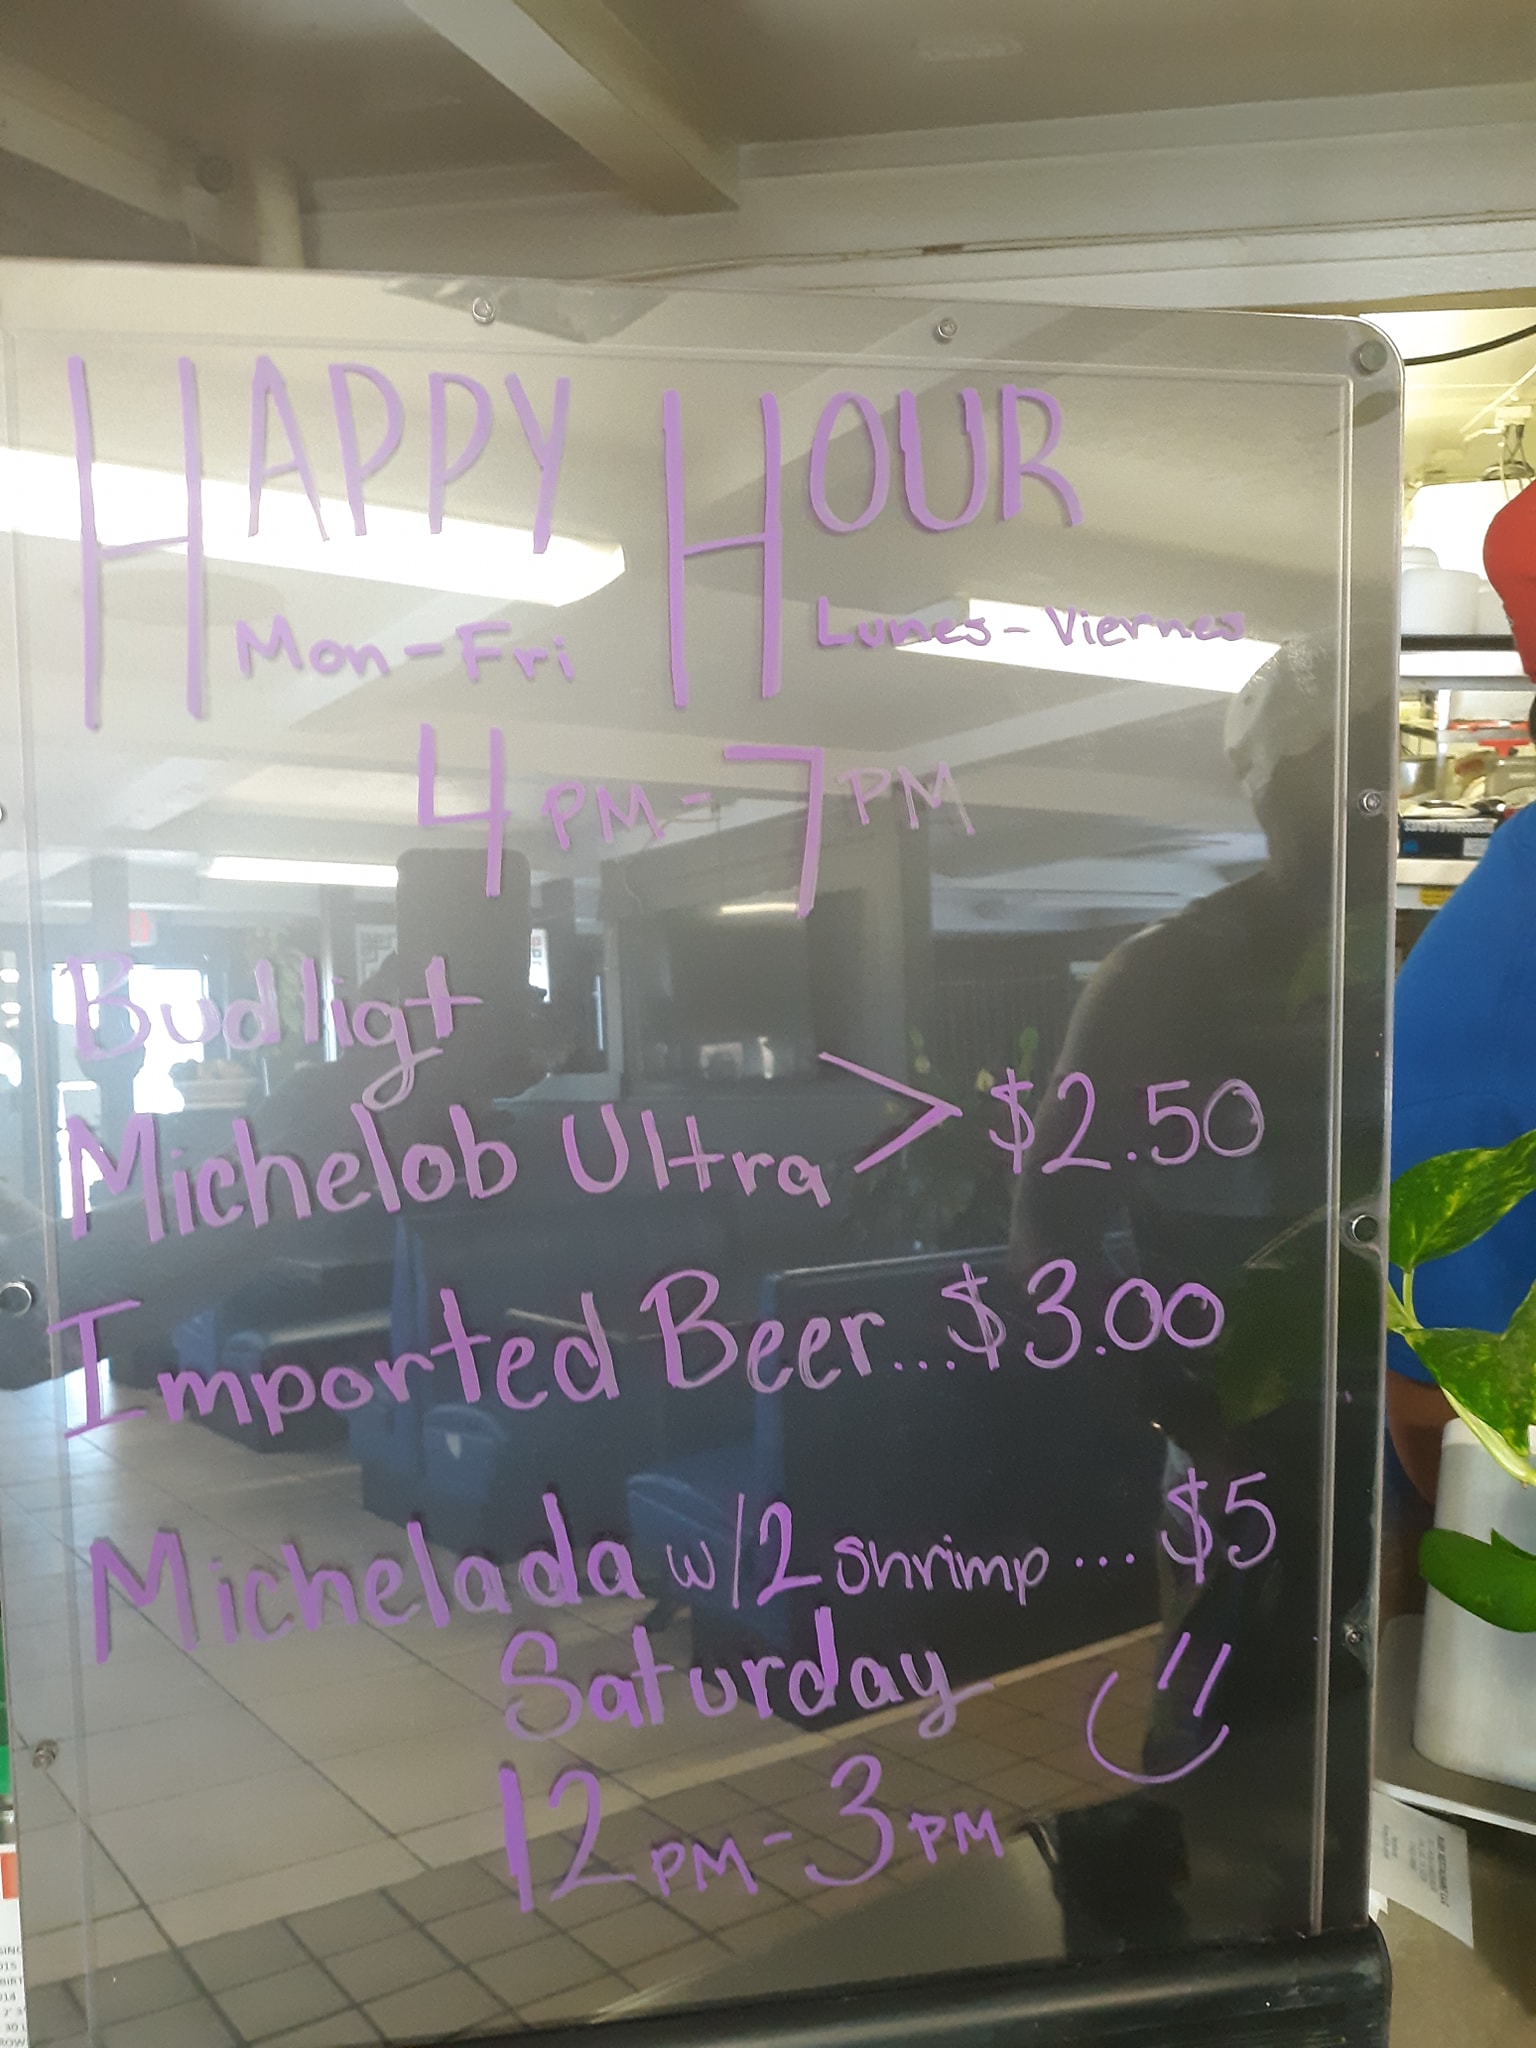 HAPPY HOUR
Mon-Fri Lunes-Viernes
4PM-7PM
Budligt
Michelob Ultra > $2.50
Imported Beer...$3.00
Michelada w/2 shrimp...$5
Saturday
12PM-3PM